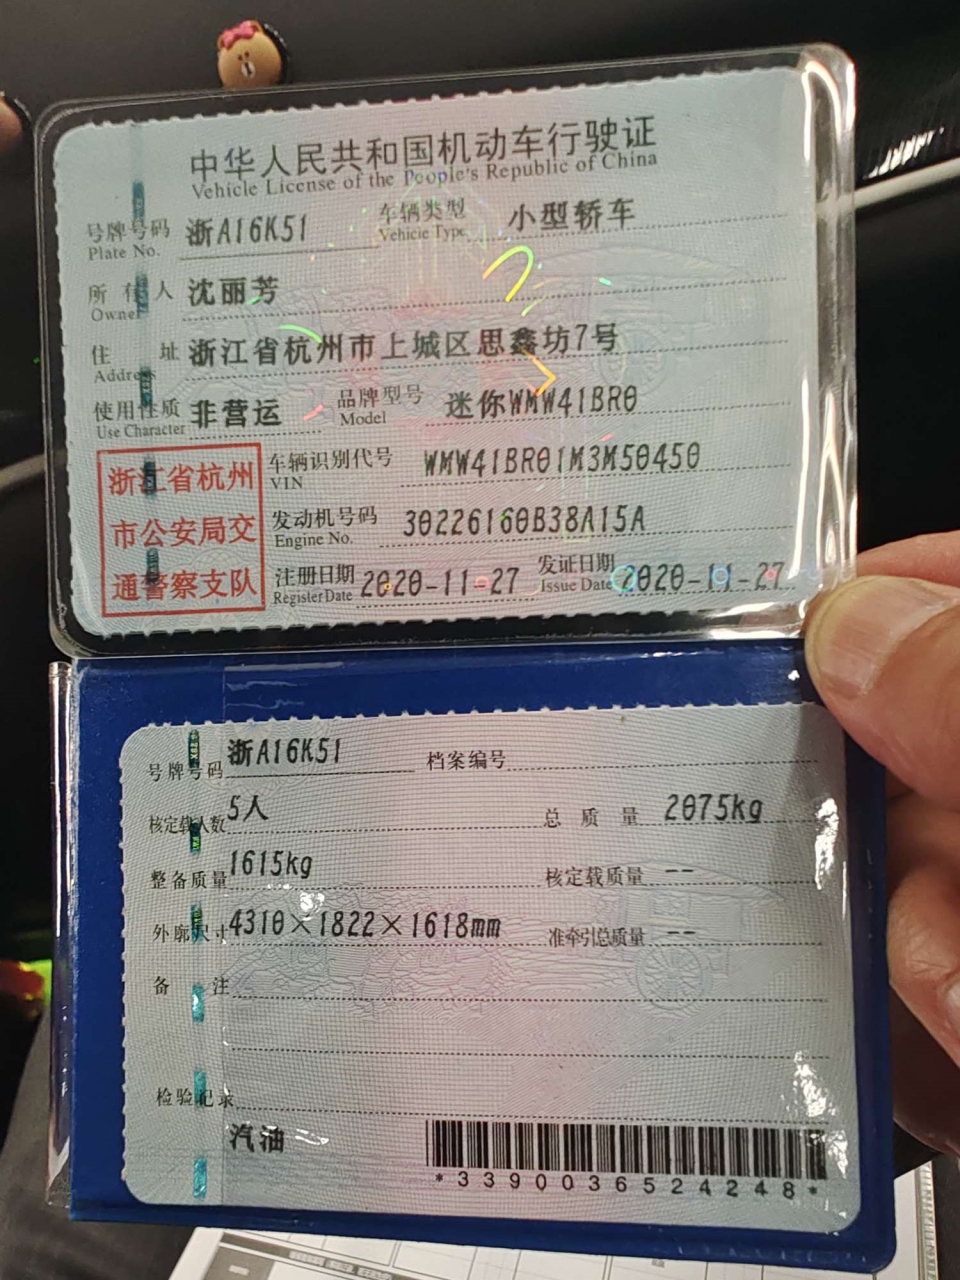 中华人民共和国机动车行驶证
Vehicle License of the People's Republic of China
号牌号码 浙A16K51 车辆类型 小型轿车
Plate No. Vehicle Type
所有人 沈丽芳
Owner
住址 浙江省杭州市上城区思鑫坊7号
Address
使用性质 非营运 品牌型号 迷你WMW41BR0
Use Character Model
浙江省杭州
市公安局交
通警察支队
车辆识别代号 WMW41BR01M3M50450
VIN
发动机号码 30226160B38A15A
Engine No.
注册日期 2020-11-27 发证日期 2020-11-27
Register Date Issue Date
号牌号码 浙A16K51 档案编号
核定载人数 5人 总质量 2075kg
整备质量 1615kg 核定载质量 --
外廓尺寸 4310×1822×1618mm 准牵引总质量 --
备注
检验记录
汽油
*3390036524248*